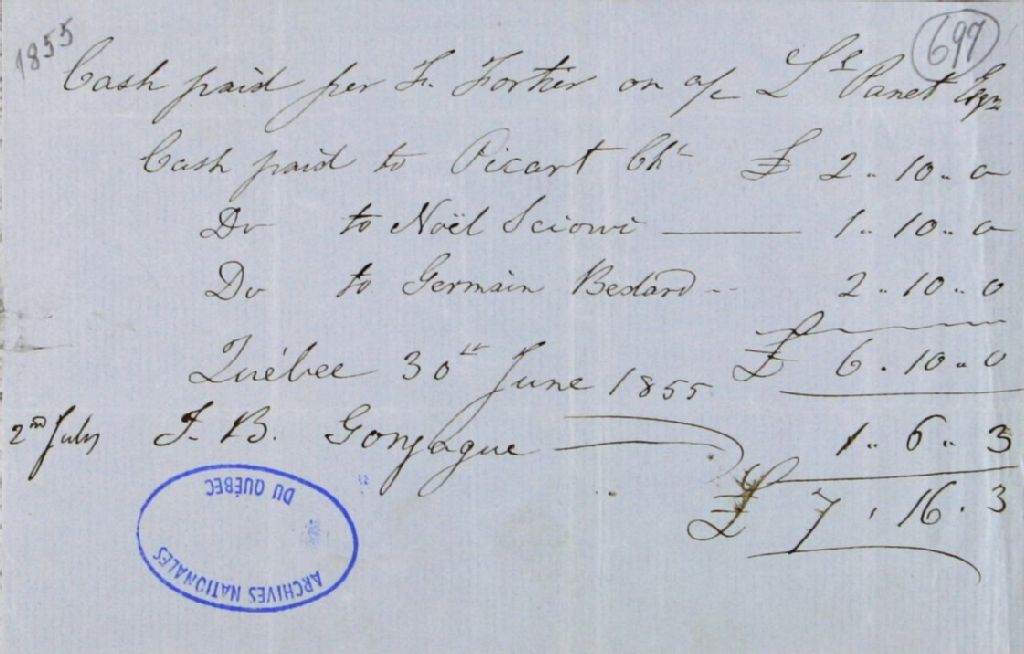 1855
699
Cash paid per F. Fortier on a/c Ls Panet Esqr
Cash paid to Picart Cht £ 2 .. 10 .. 0
Do to Noël Sciowi 1 .. 10 .. 0
Do to Germain Bedard 2 .. 10 .. 0
Québec 30th June 1855 £ 6 . 10 .. 0
2nd July J. B. Gonzague 1 .. 6 .. 3
£ 7 . 16 . 3
DU QUÉBEC
ARCHIVES NATIONALES